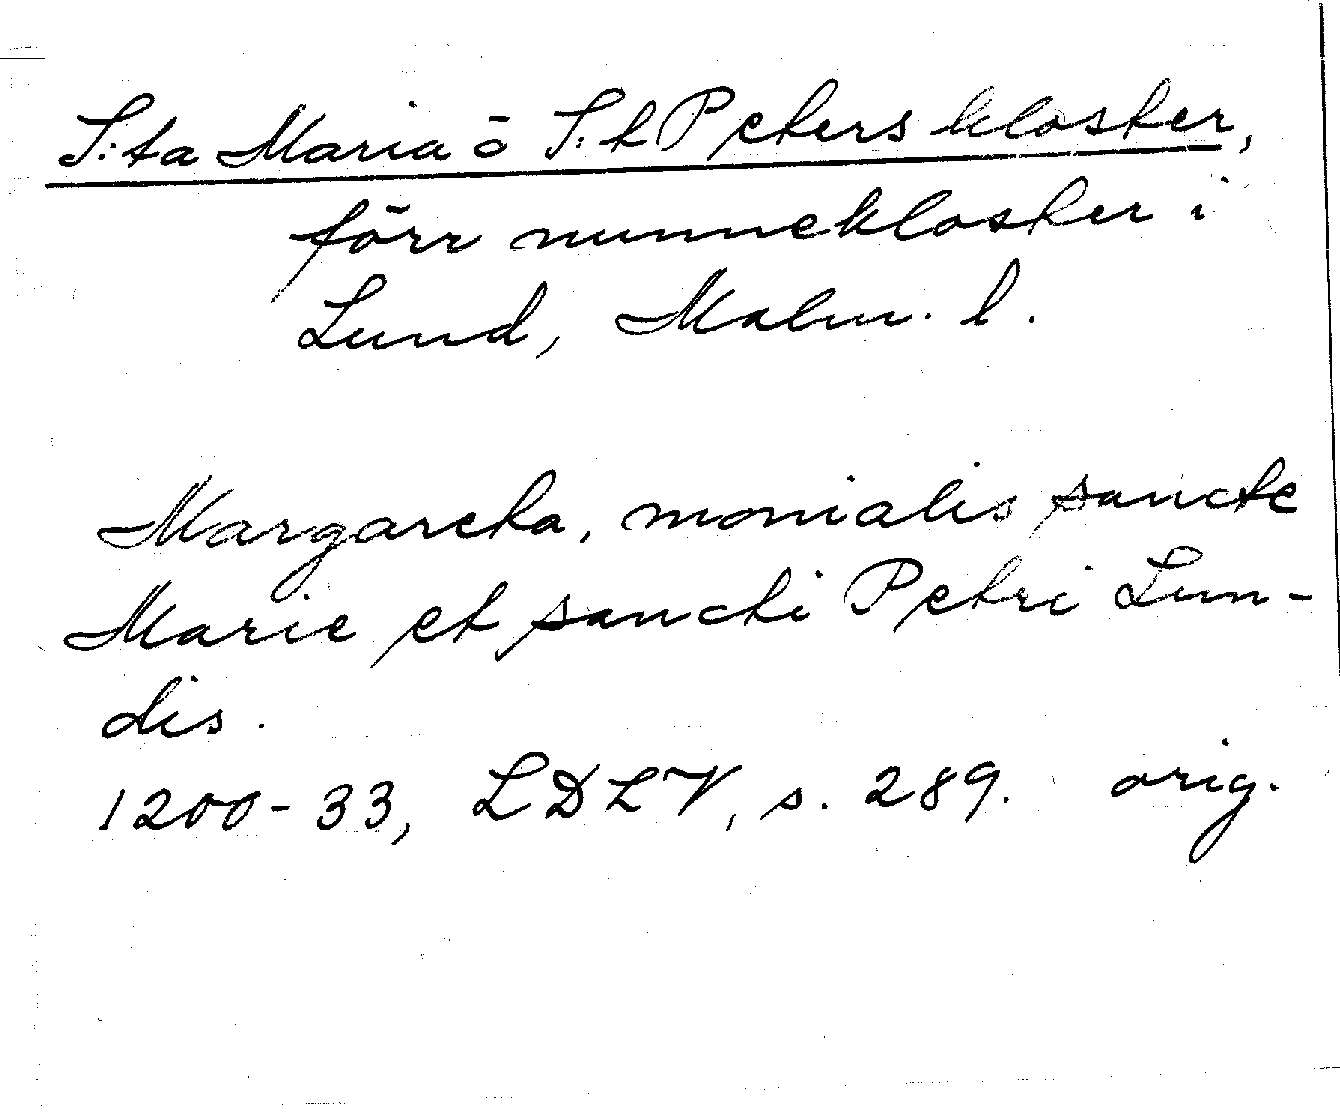 S:ta Maria o S:t Peters kloster,
förr nunnekloster i
Lund, Malm. l.
Margareta, monialis sancte
Marie et sancti Petri Lun-
dis.
1200-33, LDLV, s. 289. orig.